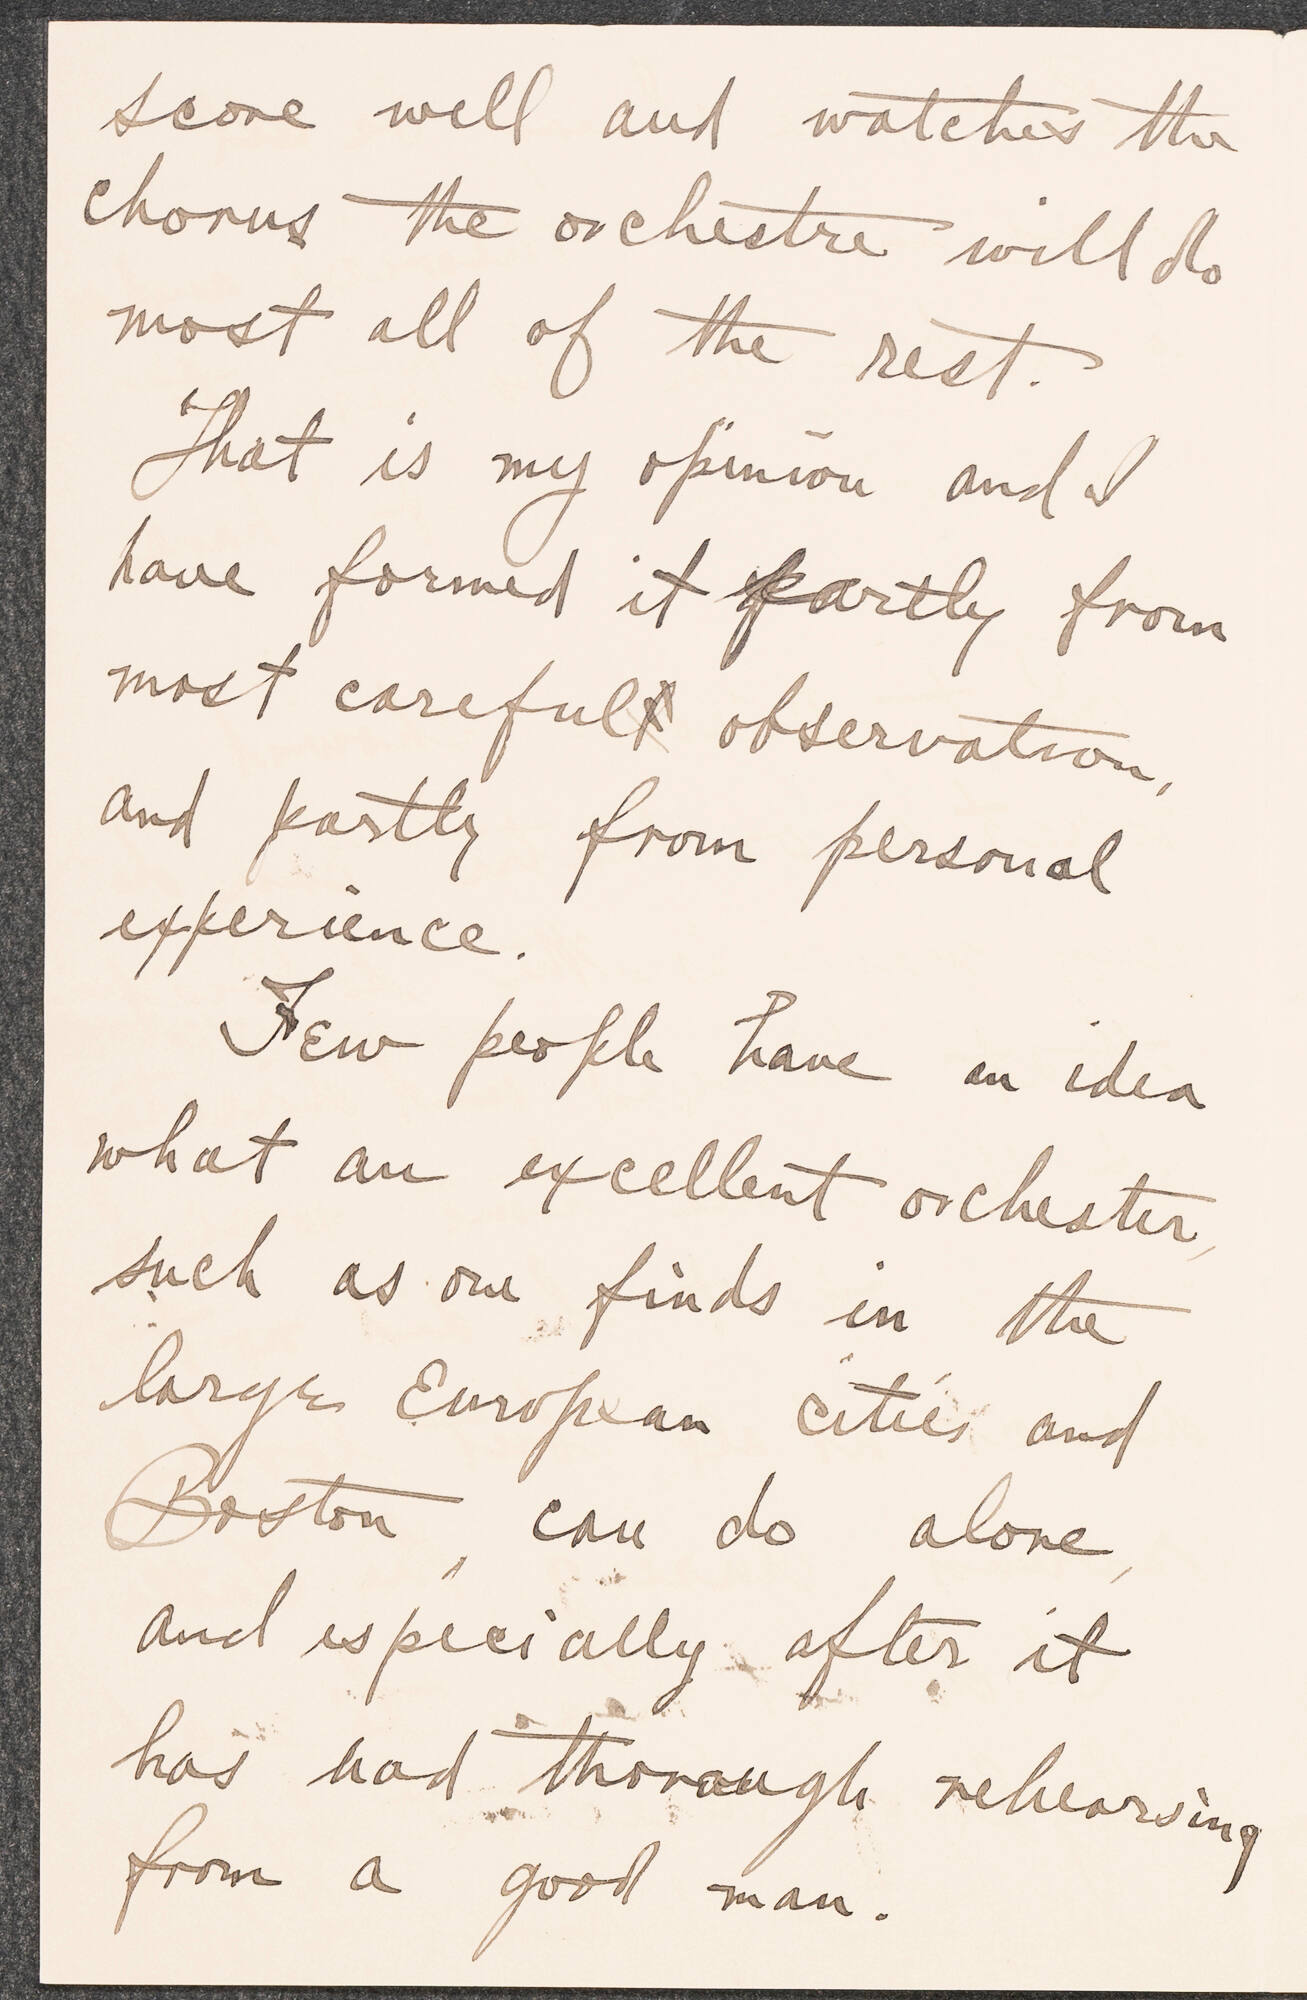 score well and watches the
chorus the orchestre will do
most all of the rest.
That is my opinion and I
have formed it partly from
most careful observation,
and partly from personal
experience.
Few people have an idea
what an excellent orchester,
such as one finds in the
large European cities and
Boston, can do alone,
and especially after it
has had thorough rehearsing
from a good man.